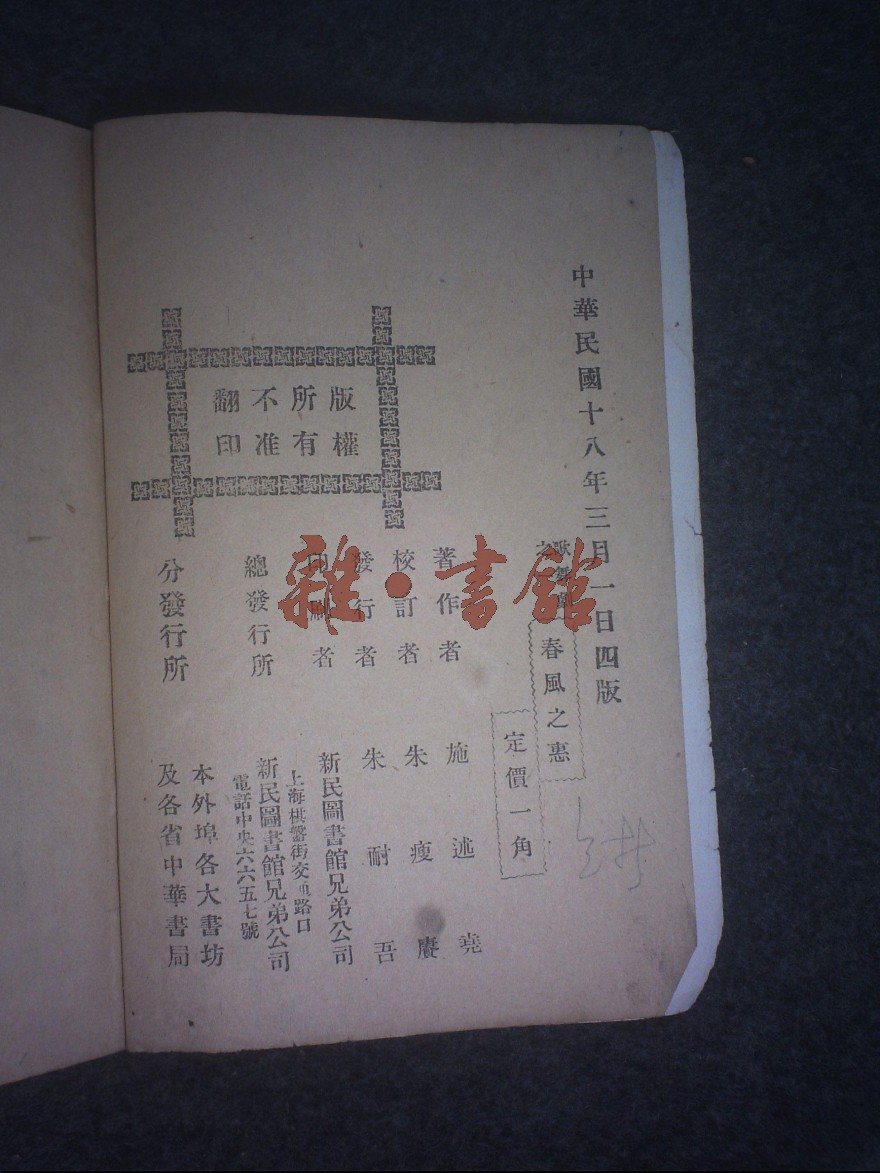 中華民國十八年三月一日四版
歌舞劇之
春風之惠
定價一角
著作者 施述堯
校訂者 朱瘦賡
發行者 朱耐吾
印刷者 新民圖書館兄弟公司
上海棋盤街交通路口
總發行所 新民圖書館兄弟公司
電話中央六六五七號
分發行所 本外埠各大書坊
及各省中華書局
版權
所有
不准
翻印
雜·書館